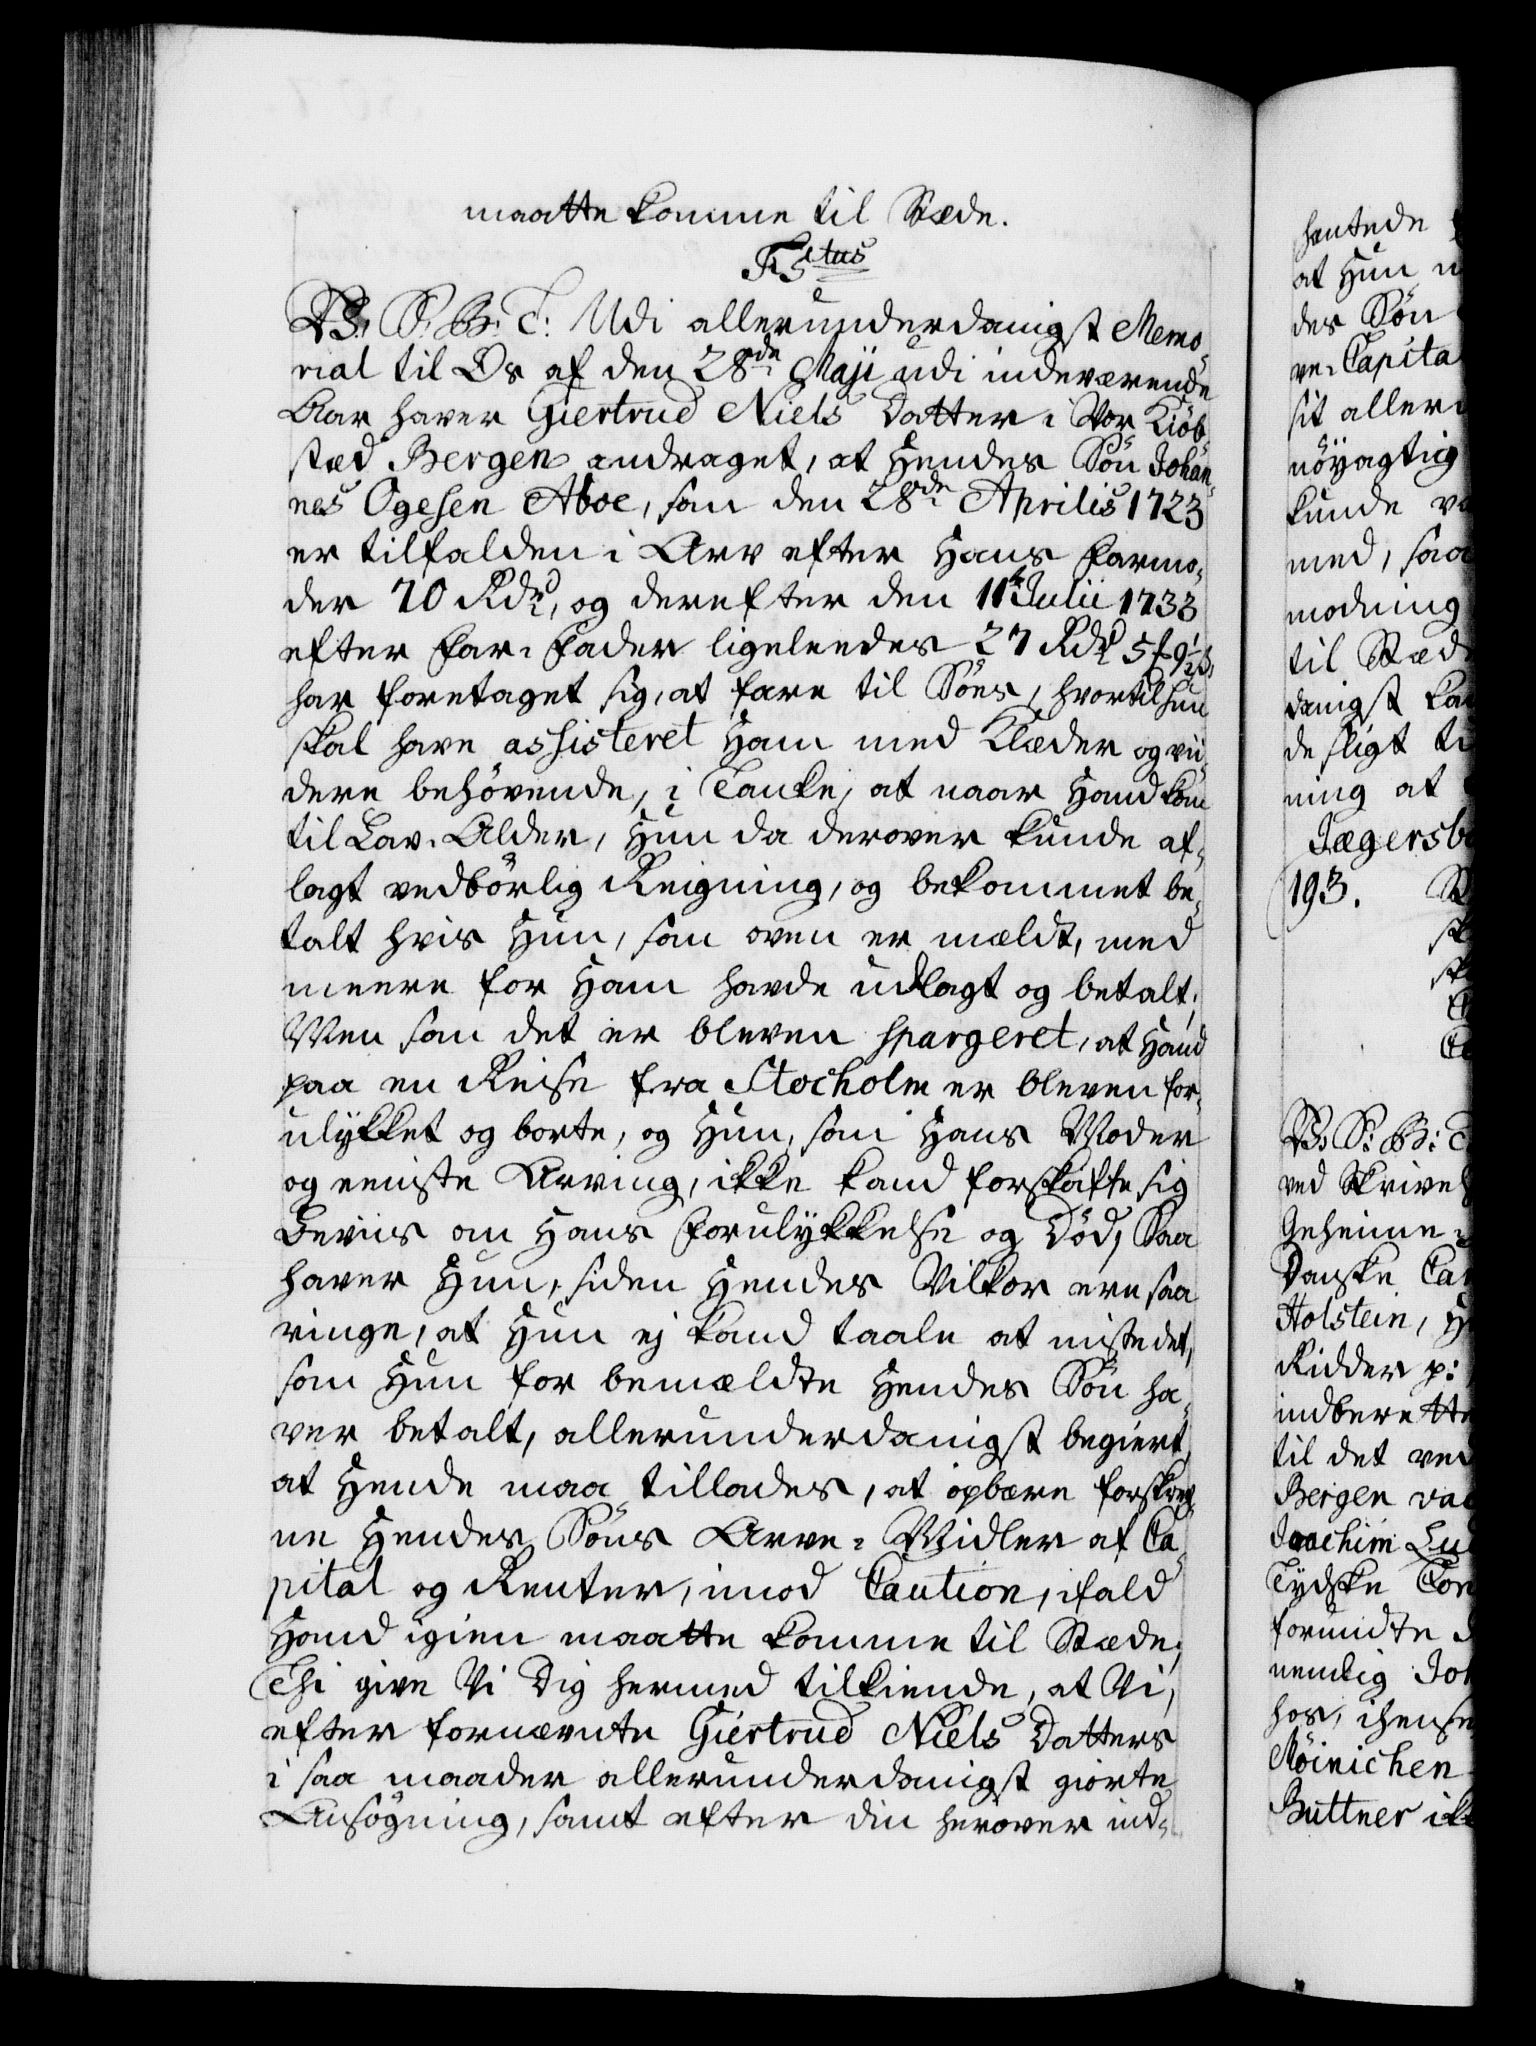 maatte komme til Stæde.
F5tus
V: S: G: T: Udi allerunderdanigst Memo-
rial til Os af den 28de Maji udi indeværende
Aar haver Giertrud Niels Datter i Vor Kiøb-
stæd Bergen andraget, at Hendes Søn Johan-
nes Ogesen Aboe, som den 28de Aprilis 1723
er tilfalden i Arv efter Hans Farmo-
der 70 Rdr, og derefter den 11te Julii 1733
efter Far-Fader ligeleedes 27 Rdr 5 ß,
har foretaget sig, at fare til Søes, hvortil hun
skal have assisteret Ham med Klæder og vii-
dere behøvende, i Tanke, at naar Hand kom
til Lav-Alder, Hun da derover kunde af-
lagt vedbørlig Reigning, og bekommet be-
talt hvis Hun, som oven er mældt, med
meere for Ham havde udlagt og betalt;
Men som det er bleven spargeret, at Hand
paa en Reise fra Stocholm er bleven for-
ulykket og borte, og Hun, som Hans Moder
og eeniste Arving, ikke kand forskaffe sig
Beviis om Hans Forulykkelse og Død, Saa
haver Hun, siden Hendes Vilkor ere saa
ringe, at Hun ej kand taale at miste det,
som Hun for bemældte Hendes Søn ha-
ver betalt, allerunderdanigst begiert,
at Hende maa tillades, at opbære forskrev-
ne Hendes Søns Arve-Midler af Ca-
pital og Renter, imod Caution, ifald
Hand igien maatte komme til Stæde;
Thi give Vi Dig hermed tilkiende, at Vi,
efter fornævnte Giertrud Niels Datters
i saa maader allerunderdanigst giorte
Ansøgning, samt efter din herover ind-
hentede
at Hun
des Søn
ve-Capita
sit aller
nøyagtig
kunde
med, saa
modning
til Stæd
danigst
de sligt
ning at
Jægersb
193.
V: S: G: T
ved Skrivel
Geheime-
Danske Ca
Holstein,
Ridder p:
indberette
til det ved
Bergen
Joachim Lu
Tydske Con
forundte
nemlig Joh
hos, ihense
Møinichen
Buttner